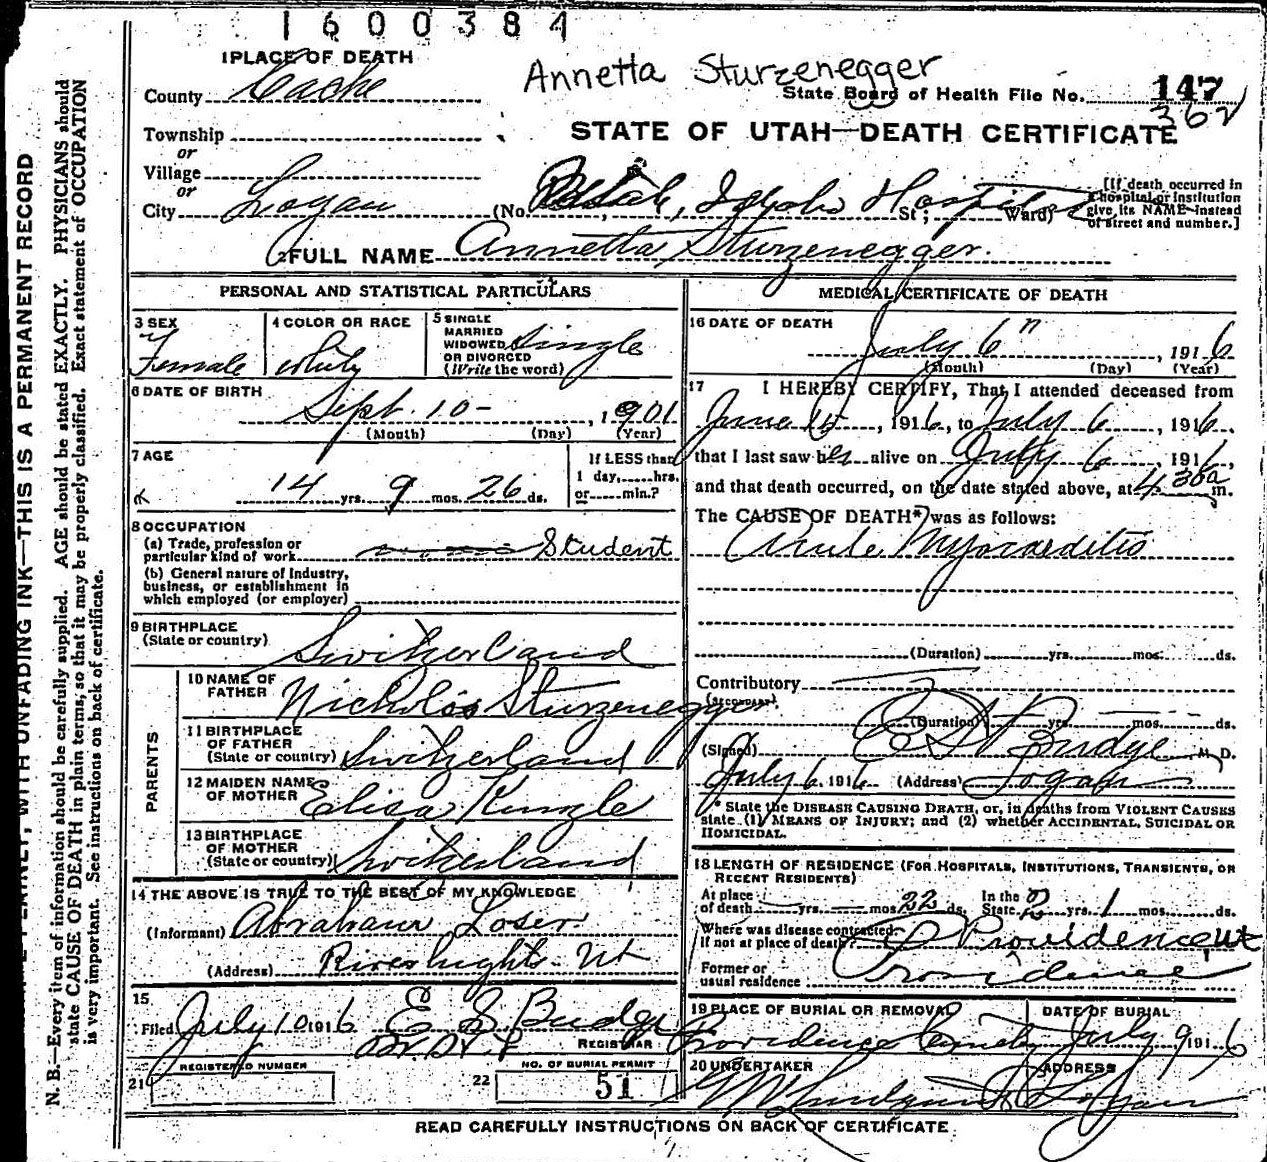 1600384
1 PLACE OF DEATH
Annetta Sturzenegger
County Cache
State Board of Health File No. 147
362
Township
or
STATE OF UTAH—DEATH CERTIFICATE
Village
or
City Logan (No. Utah, Idaho Hospital St; Ward)
[If death occurred in
a hospital or institution
give its NAME instead
of street and number.]
2 FULL NAME Annetta Sturzenegger.
PERSONAL AND STATISTICAL PARTICULARS
3 SEX
Female
4 COLOR OR RACE
White
5 SINGLE
MARRIED
WIDOWED
OR DIVORCED
(Write the word)
Single
6 DATE OF BIRTH
Sept. 10- , 1901
(Month) (Day) (Year)
7 AGE
14 yrs. 9 mos. 26 ds.
If LESS than
1 day,....hrs.
or.....min.?
8 OCCUPATION
(a) Trade, profession or
particular kind of work Student
(b) General nature of industry,
business, or establishment in
which employed (or employer)
9 BIRTHPLACE
(State or country) Switzerland
PARENTS
10 NAME OF
FATHER Nicholas Sturzenegger
11 BIRTHPLACE
OF FATHER
(State or country) Switzerland
12 MAIDEN NAME
OF MOTHER Elisa Kunzle
13 BIRTHPLACE
OF MOTHER
(State or country) Switzerland
14 THE ABOVE IS TRUE TO THE BEST OF MY KNOWLEDGE
(Informant) Abraham Loser.
(Address) Riverheights - Ut
15
Filed July 10 1916 E S Budge
REGISTRAR
REGISTERED NUMBER
21
NO. OF BURIAL PERMIT
22 51
MEDICAL CERTIFICATE OF DEATH
16 DATE OF DEATH
July 6" , 1916
(Month) (Day) (Year)
17 I HEREBY CERTIFY, That I attended deceased from
June 15, 1916, to July 6, 1916,
that I last saw her alive on July 6, 1916,
and that death occurred, on the date stated above, at 4 30a m.
The CAUSE OF DEATH* was as follows:
Acute Myocarditis
(Duration) yrs. mos. ds.
Contributory
(SECONDARY)
(Duration) yrs. mos. ds.
(Signed) E S Budge M. D.
July 6, 1916 (Address) Logan
* State the DISEASE CAUSING DEATH, or, in deaths from VIOLENT CAUSES
state (1) MEANS OF INJURY; and (2) whether ACCIDENTAL, SUICIDAL OR
HOMICIDAL.
18 LENGTH OF RESIDENCE (FOR HOSPITALS, INSTITUTIONS, TRANSIENTS, OR
RECENT RESIDENTS)
At place
of death yrs. mos. 22 ds.
In the
State 2 yrs. 1 mos. ds.
Where was disease contracted,
If not at place of death? Providence Ut
Former or
usual residence Providence
19 PLACE OF BURIAL OR REMOVAL
Providence Cemetery
DATE OF BURIAL
July 9 1916
20 UNDERTAKER
ADDRESS
Logan
READ CAREFULLY INSTRUCTIONS ON BACK OF CERTIFICATE
WITH UNFADING INK—THIS IS A PERMANENT RECORD
N. B.—Every item of information should be carefully supplied. AGE should be stated EXACTLY. PHYSICIANS should
state CAUSE OF DEATH in plain terms, so that it may be properly classified. Exact statement of OCCUPATION
is very important. See instructions on back of certificate.